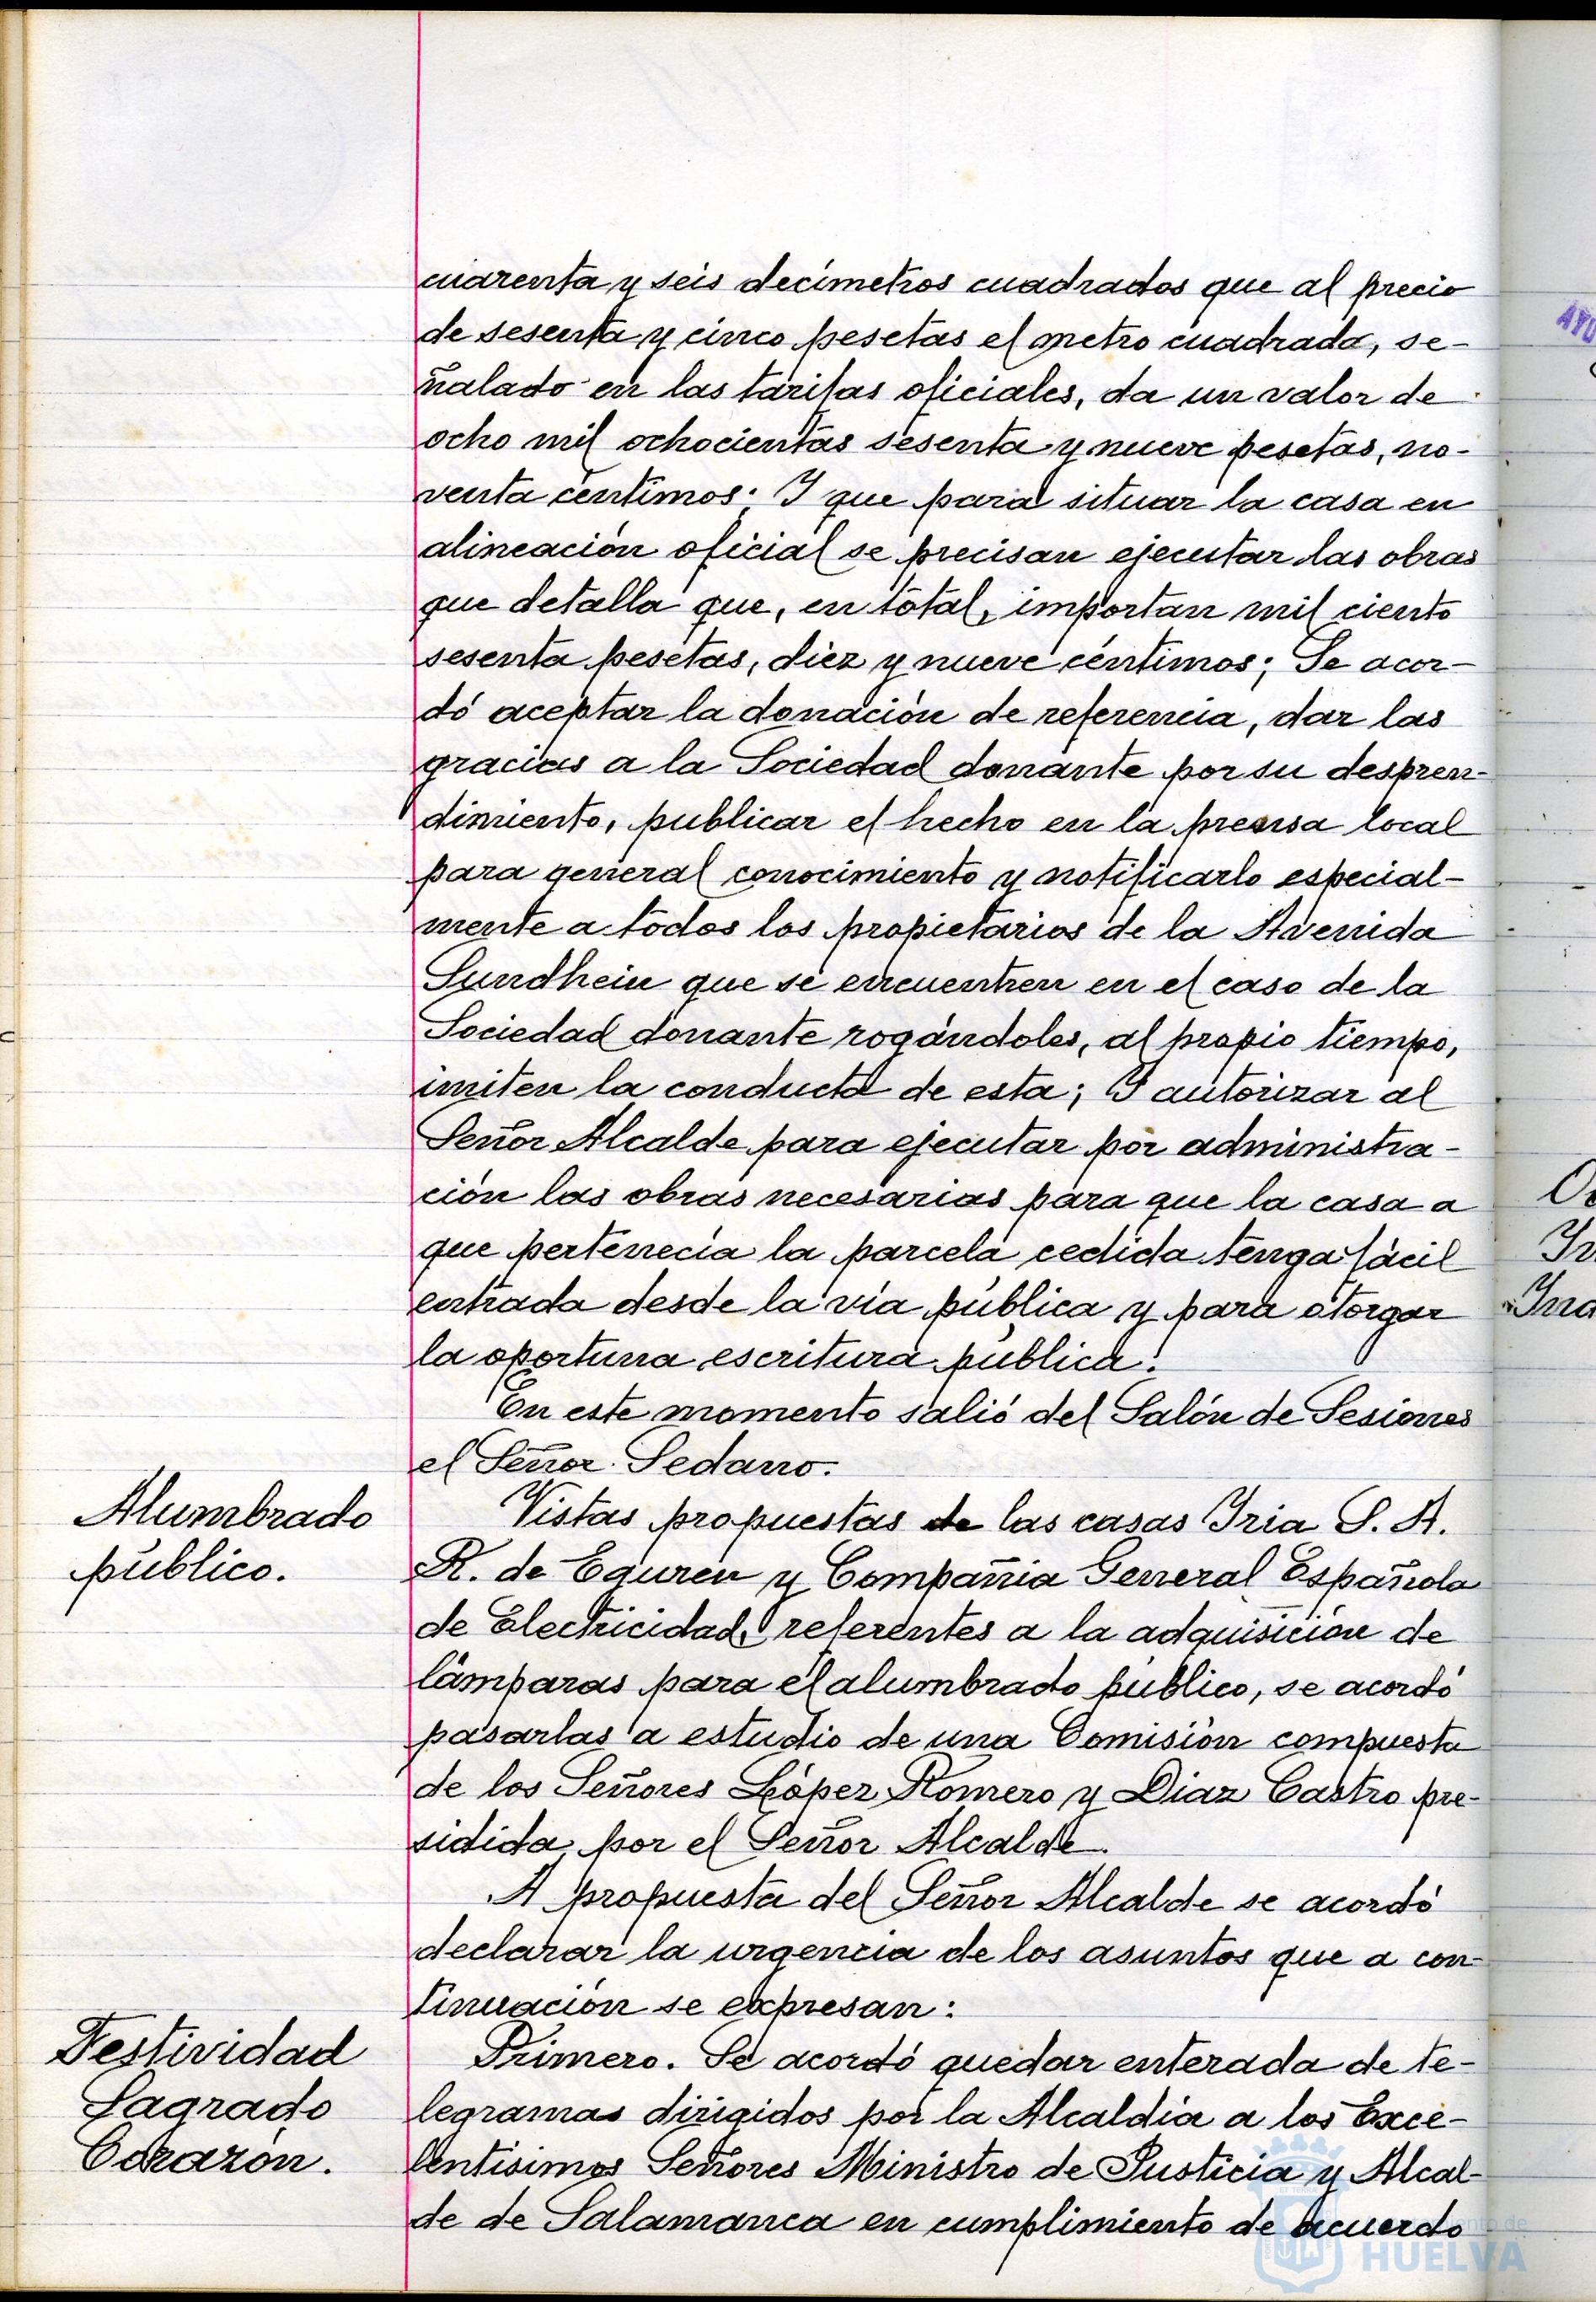 cuarenta y seis decímetros cuadrados que al precio
de sesenta y cinco pesetas el metro cuadrado, se-
ñalado en las tarifas oficiales, da un valor de
ocho mil ochocientas sesenta y nueve pesetas, no-
venta céntimos. Y que para situar la casa en
alineación oficial se precisan ejecutar las obras
que detalla que, en total, importan mil ciento
sesenta pesetas, diez y nueve céntimos; Se acor-
dó aceptar la donación de referencia, dar las
gracias a la Sociedad donante por su despren-
dimiento, publicar el hecho en la prensa local
para general conocimiento y notificarlo especial-
mente a todos los propietarios de la Avenida
Sundhein que se encuentren en el caso de la
Sociedad donante rogándoles, al propio tiempo,
imiten la conducta de esta; Y autorizar al
Señor Alcalde para ejecutar por administra-
ción las obras necesarias para que la casa a
que pertenecía la parcela cedida tenga fácil
entrada desde la vía pública y para otorgar
la oportuna escritura pública.
En este momento salió del Salón de Sesiones
el Señor Sedano.
Alumbrado
público.
Vistas propuestas de las casas Iria S. A.
R. de Eguren y Compañia General Española
de Electricidad, referentes a la adquisición de
lámparas para el alumbrado público, se acordó
pasarlas a estudio de una Comisión compuesta
de los Señores López Romero y Diaz Castro pre-
sidida por el Señor Alcalde.
A propuesta del Señor Alcalde se acordó
declarar la urgencia de los asuntos que a con-
tinuación se expresan:
Festividad
Sagrado
Corazón.
Primero. Se acordó quedar enterada de te-
legramas dirigidos por la Alcaldía a los Exce-
lentísimos Señores Ministro de Justicia y Alcal-
de de Salamanca en cumplimiento de acuerdo
HUELVA